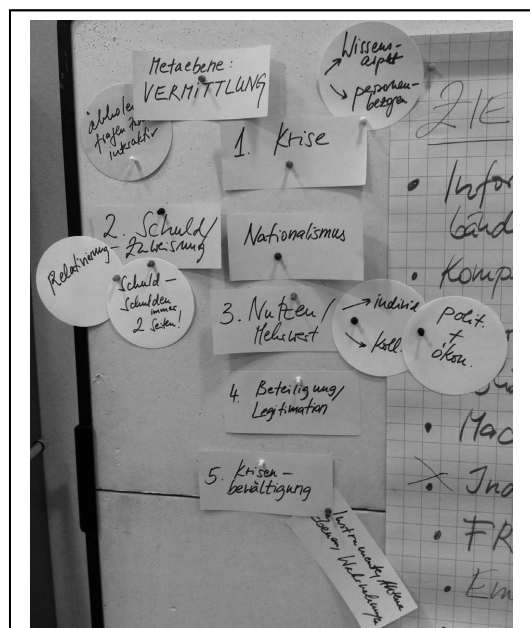 Metaebene:
VERMITTLUNG
→ Wissens-
aspekt
→ personen-
bezogen
abholen
fragen
interaktiv
1. Krise
2. Schuld/
Zuweisung
Relativierung
Schuld –
Schulden
immer
2 Seiten!
Nationalismus
3. Nutzen/
Mehrwert
→ individ
→ koll.
Polit.
+
ökon.
4. Beteiligung/
Legitimation
5. Krisen-
bewältigung
Instrumente, Akteure
Ebenen,
ZIE
• Infor
bänd
• Komp
• Mac
• Ind
• FR
• Em